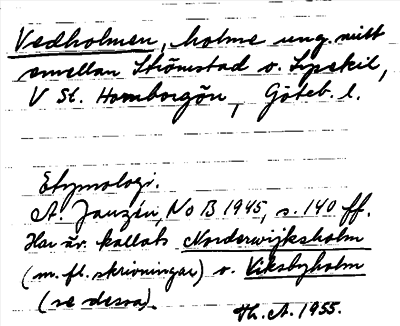 Vedholmen, holme ung. mitt
emellan Strömstad o. Lysekil,
V St. Hamborgön, Göteb. l.
Etymologi.
A. Janzén, NoB 1945, s. 140 ff.
Har äv. kallats Norderwijksholm
(m. fl. skrivningar) o. Viksbyholm
(se dessa).
Th. A. 1955.